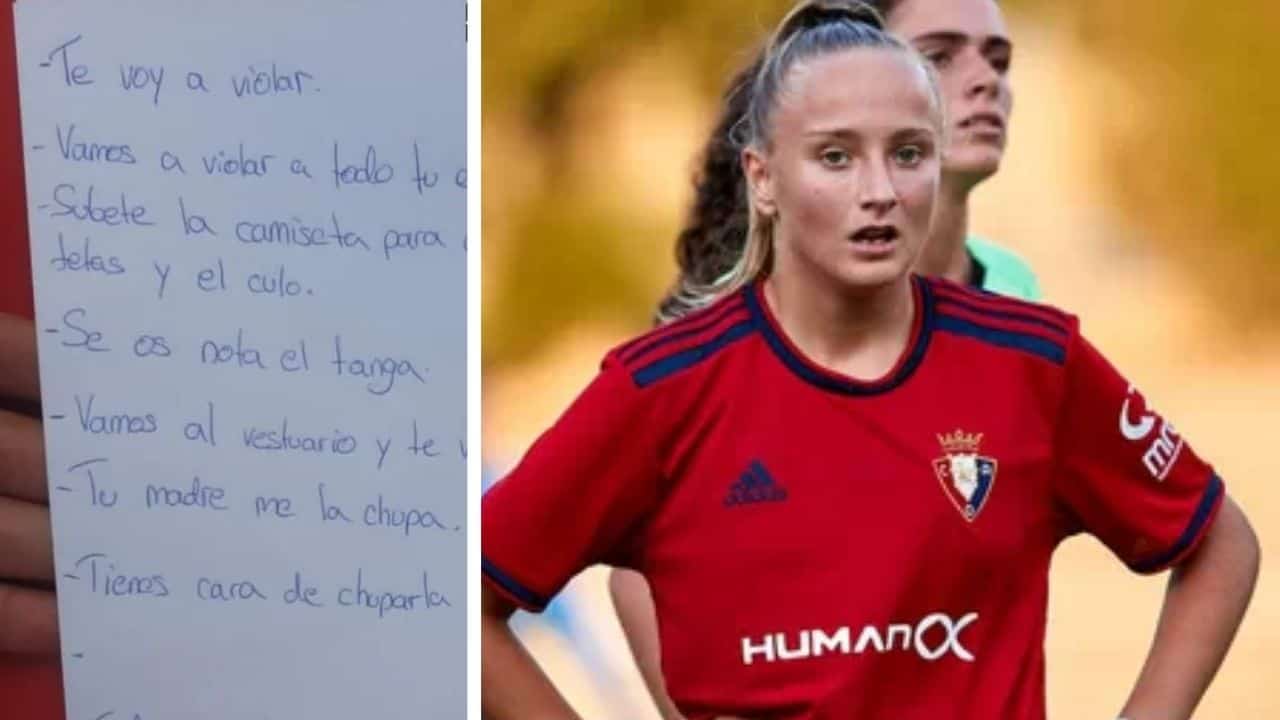 -Te voy a violar.
-Vamos a violar a todo tu
-Subete la camiseta para
tetas y el culo.
-Se os nota el tanga.
-Vamos al vestuario y te
-Tu madre me la chupa.
-Tienes cara de chuparla
-
HUMANOX